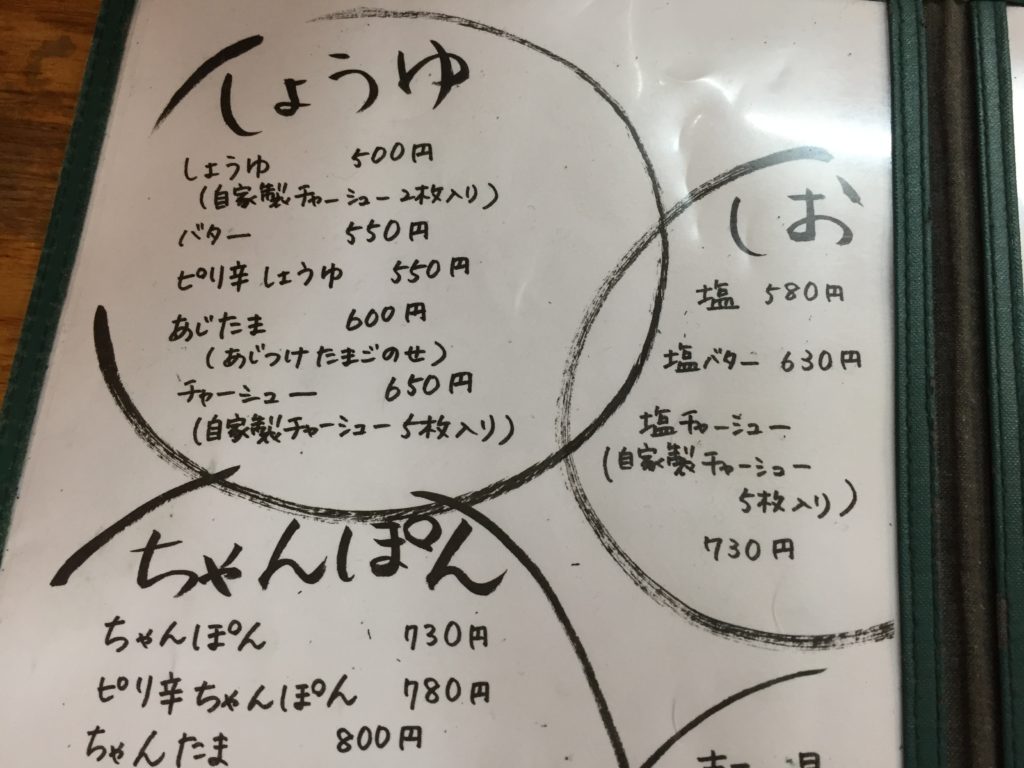 しょうゆ
しょうゆ 500円
(自家製チャーシュー2枚入り)
バター 550円
ピリ辛しょうゆ 550円
あじたま 600円
(あじつけたまごのせ)
チャーシュー 650円
(自家製チャーシュー5枚入り)
しお
塩 580円
塩バター 630円
塩チャーシュー
(自家製チャーシュー
5枚入り)
730円
ちゃんぽん
ちゃんぽん 730円
ピリ辛ちゃんぽん 780円
ちゃんたま 800円